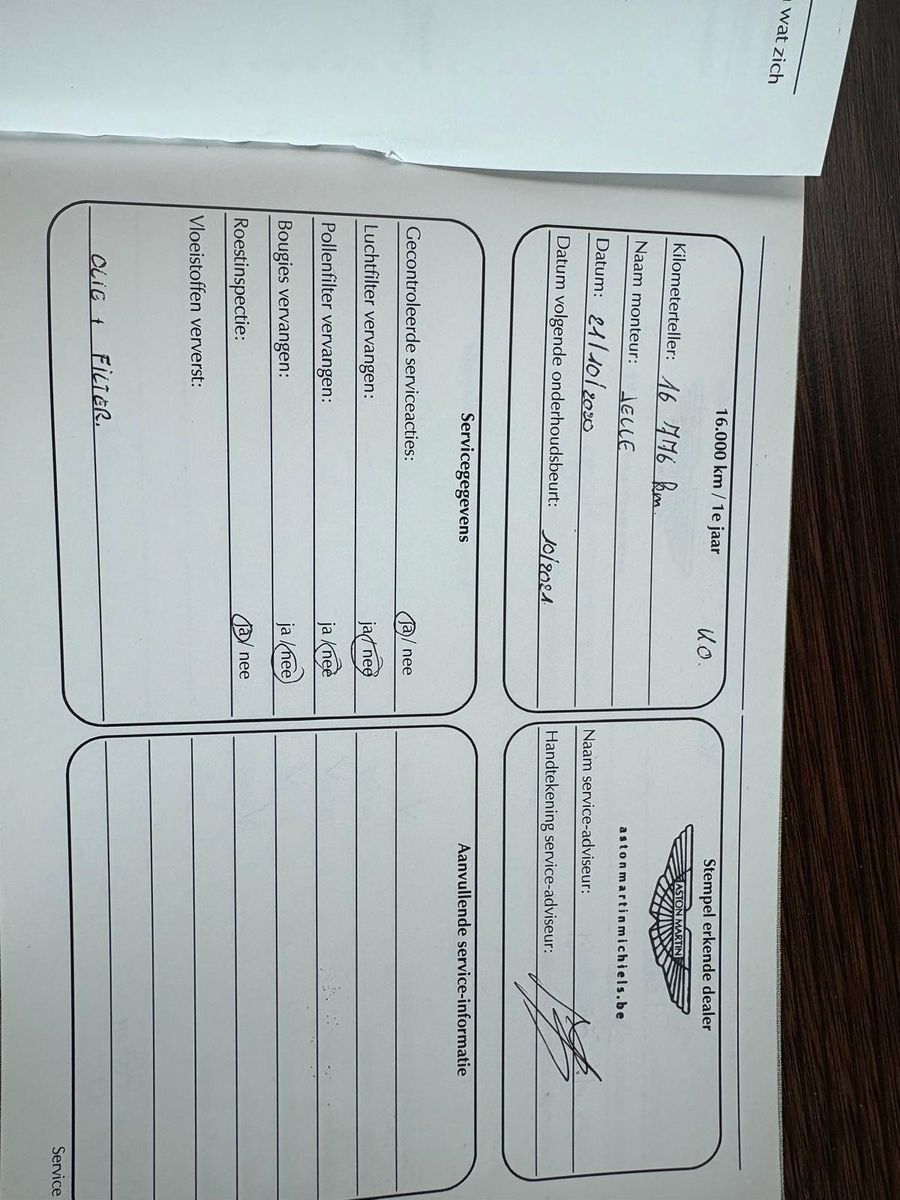 wat zich
16.000 km / 1e jaar
Kilometerteller: 16 776 km.
Naam monteur: JELLE
Datum: 21/10/2020
Datum volgende onderhoudsbeurt: 10/2021
Stempel erkende dealer
ASTON MARTIN
astonmartinmichiels.be
Naam service-adviseur:
Handtekening service-adviseur:
Servicegegevens
Gecontroleerde serviceacties: ja / nee
Luchtfilter vervangen: ja / nee
Pollenfilter vervangen: ja / nee
Bougies vervangen: ja / nee
Roestinspectie: ja / nee
Vloeistoffen ververst:
OLIE + FILTER.
Aanvullende service-informatie
Service